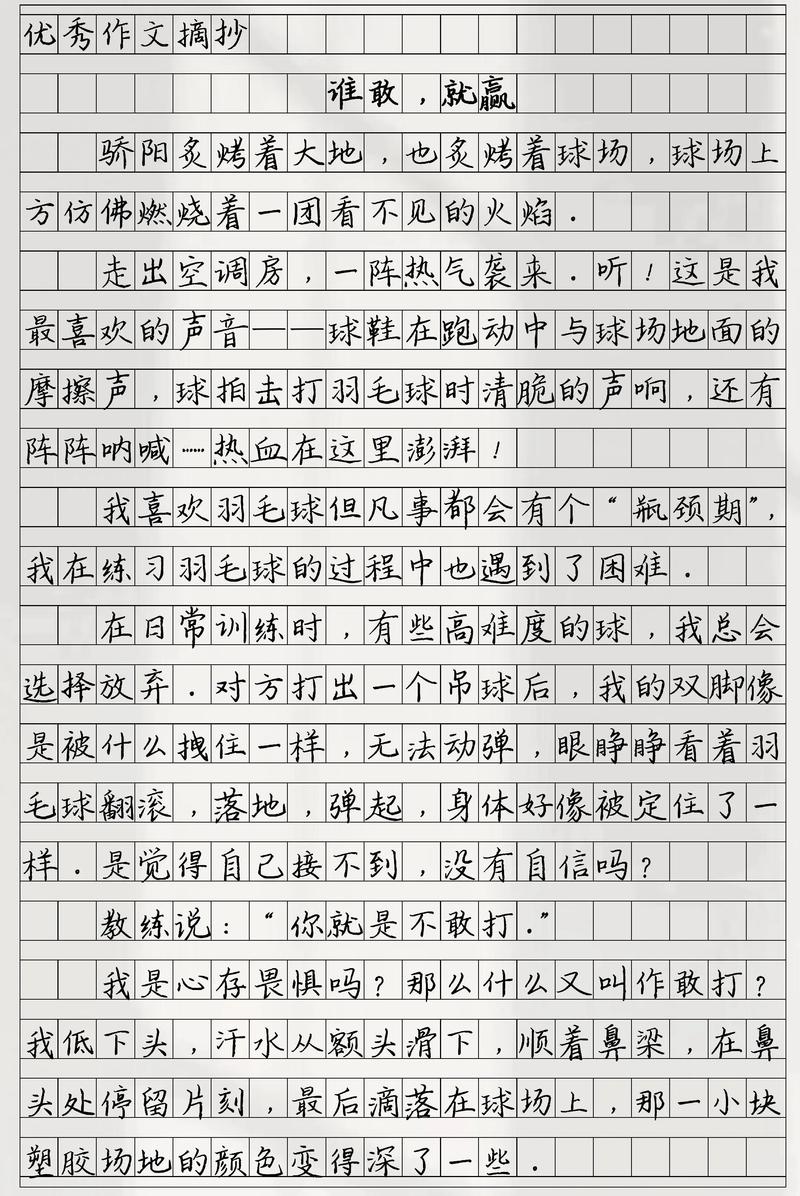 优秀作文摘抄
谁敢，就赢
骄阳炙烤着大地，也炙烤着球场，球场上
方仿佛燃烧着一团看不见的火焰．
走出空调房，一阵热气袭来．听！这是我
最喜欢的声音——球鞋在跑动中与球场地面的
摩擦声，球拍击打羽毛球时清脆的声响，还有
阵阵呐喊……热血在这里澎湃！
我喜欢羽毛球但凡事都会有个“瓶颈期”，
我在练习羽毛球的过程中也遇到了困难．
在日常训练时，有些高难度的球，我总会
选择放弃．对方打出一个吊球后，我的双脚像
是被什么拽住一样，无法动弹，眼睁睁看着羽
毛球翻滚，落地，弹起，身体好像被定住了一
样．是觉得自己接不到，没有自信吗？
教练说：“你就是不敢打．”
我是心存畏惧吗？那么什么又叫作敢打？
我低下头，汗水从额头滑下，顺着鼻梁，在鼻
头处停留片刻，最后滴落在球场上，那一小块
塑胶场地的颜色变得深了一些．